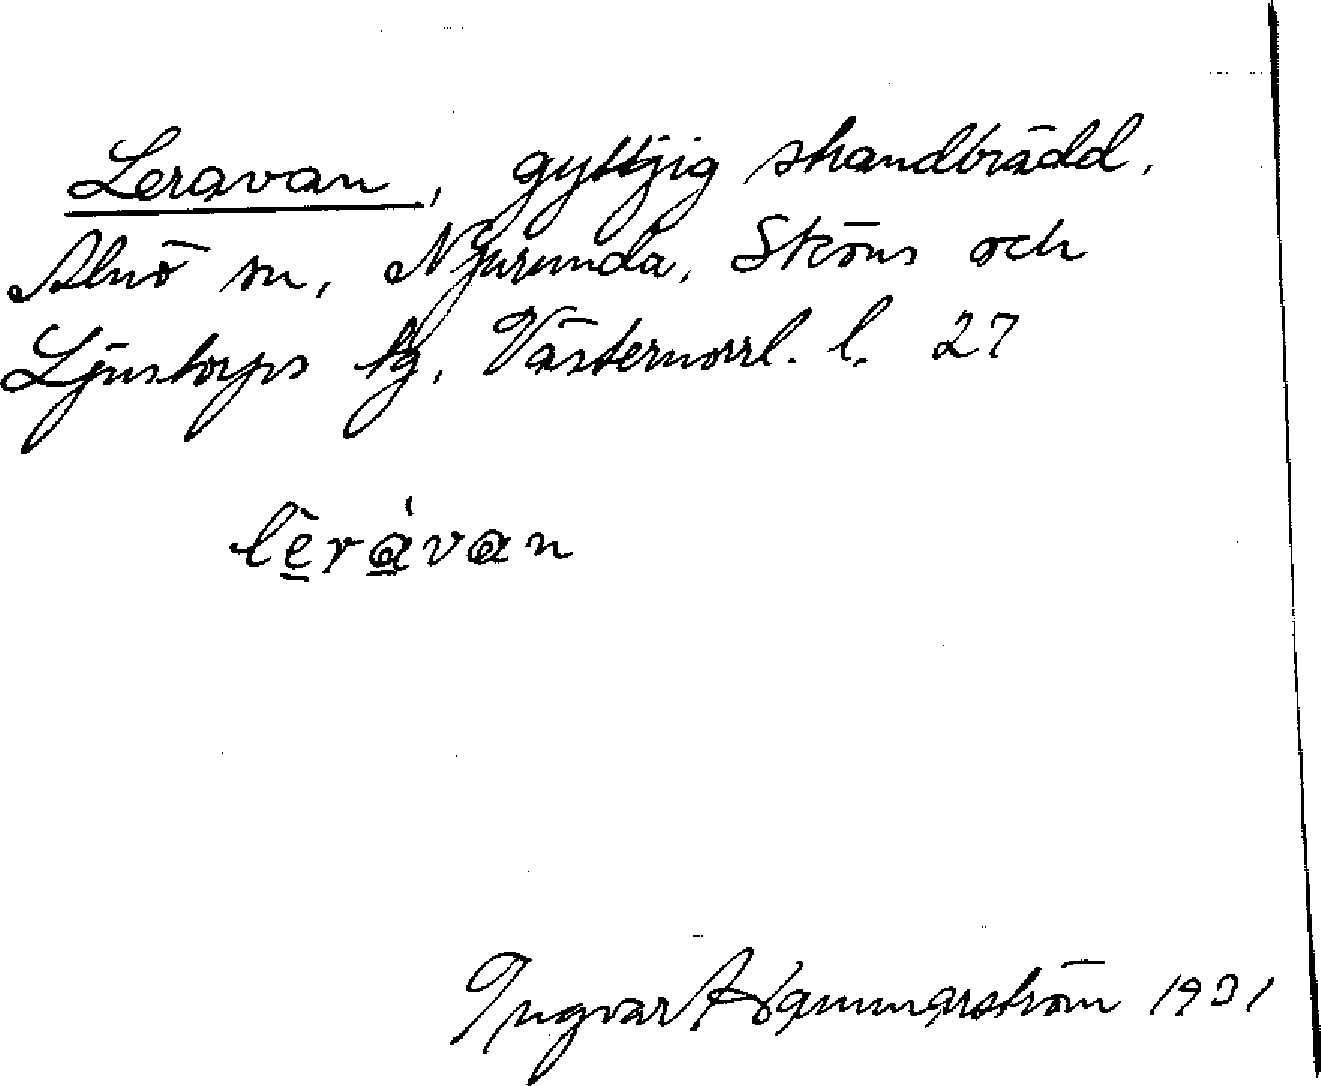 Leravan, gyttjig strandbrädd,
Alnö sn, Njurunda, Sköns och
Ljustorps tg, Västernorrl. l. 27
lēràvan
Ingvar Hammarström 1931